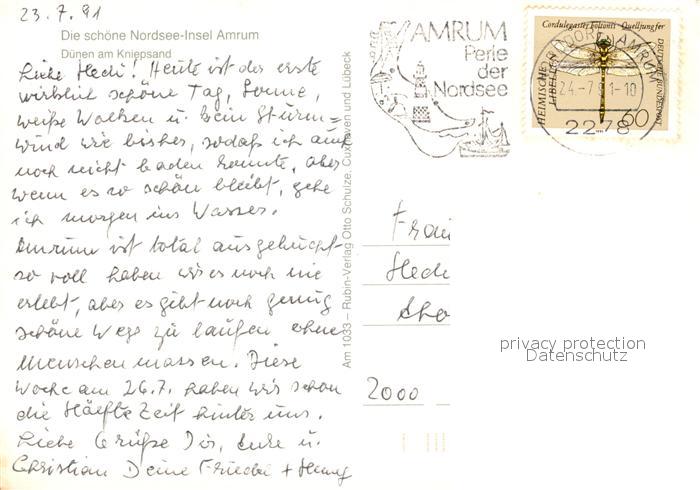 23.7.91
Die schöne Nordsee-Insel Amrum
Dünen am Kniepsand
Liebe Hedi! Heute ist der erste
wirklich schöne Tag, Sonne,
weiße Wolken u. kein Sturm-
wind wie bisher, sodaß ich auch
noch nicht baden konnte, aber
wenn es so schön bleibt, gehe
ich morgen ins Wasser.
Amrum ist total ausgebucht
so voll haben wir es noch nie
erlebt, aber es gibt noch genug
schöne Wege zu laufen ohne
Menschenmassen. Diese
Woche am 26.7. haben wir schon
die Hälfte Zeit hinter uns.
Liebe Grüße Dir, u.
Christian Deine Friedel + Henry
Am 1033 – Rubin-Verlag Otto Schulze, Cuxhaven und Lübeck
AMRUM
Perle
der
Nordsee
Cordulegaster boltonii · Quelljungfer
HEIMISCHE
LIBELLEN
DEUTSCHE BUNDESPOST
60
AMRUM
24.-7.91-10
2278
Frau
Hedi
2000
privacy protection
Datenschutz